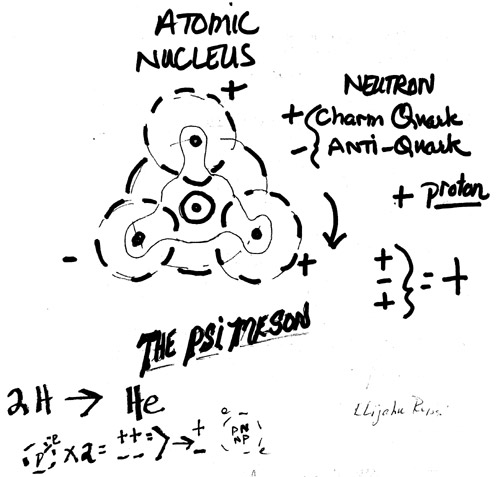 ATOMIC
NUCLEUS
+
NEUTRON
+ { Charm Quark
- { ANTI-Quark
+ proton
-
+
+
-
+
} = +
THE PSI MESON
2H → He
P e × 2 = ++ = } → +
-- -
e -
PN
NP
- e